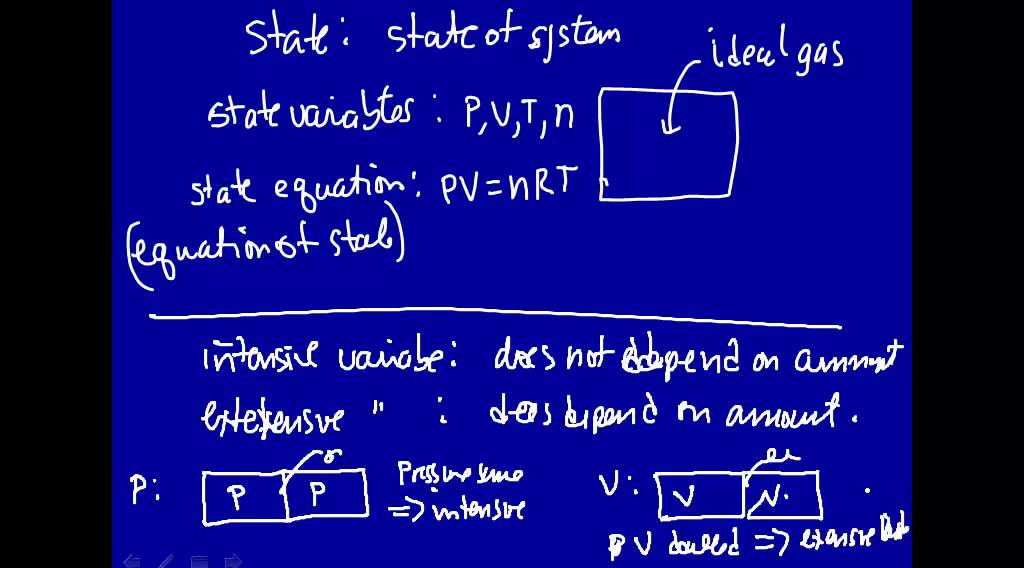 State: state of system
ideal gas
state variables: P, V, T, n
state equation: PV = nRT
(equation of state)
intensive variable: does not depend on amount
extensive " : does depend on amount.
P: P P Pressure same
=> intensive
V: V V.
V doubled => extensive